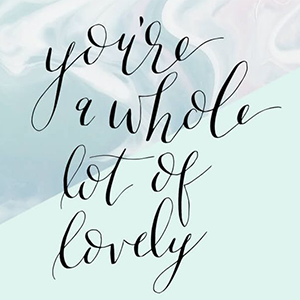 you're
a whole
lot of
lovely